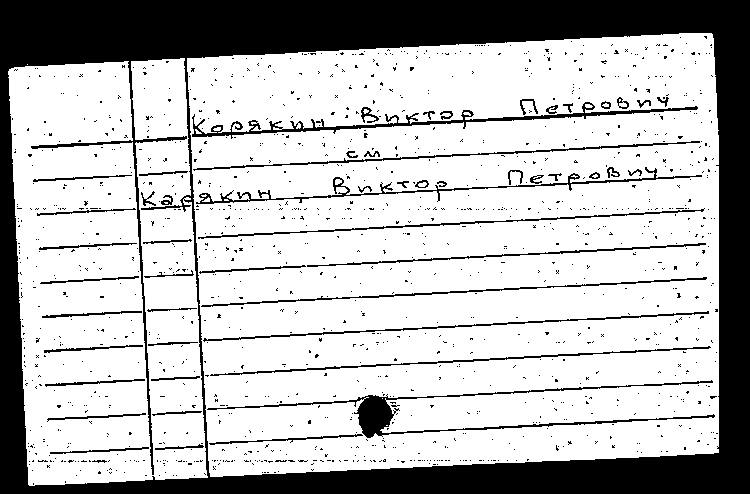 Корякин, Виктор Петрович
см.
Карякин, Виктор Петрович